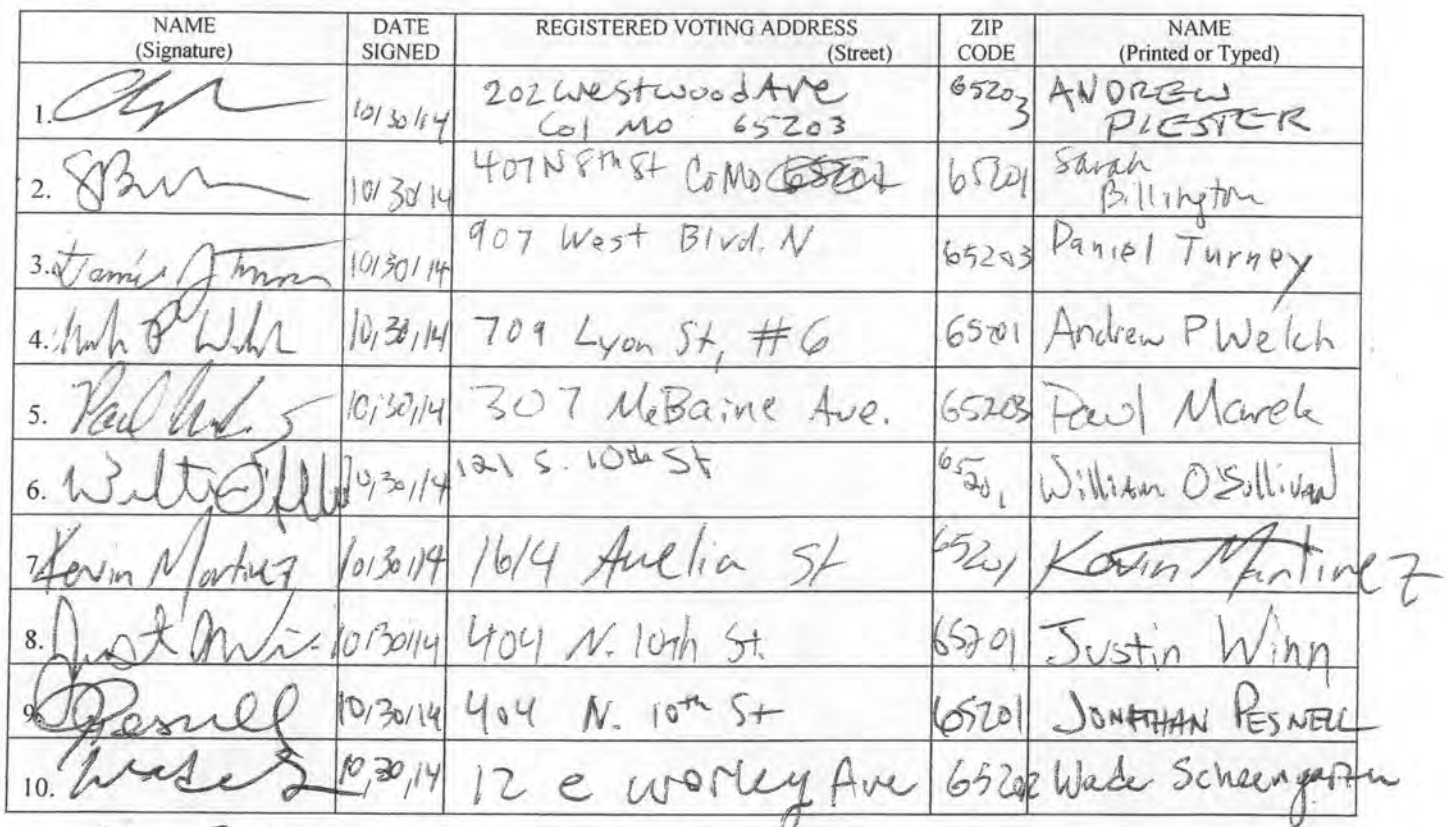 NAME (Signature) DATE SIGNED REGISTERED VOTING ADDRESS (Street) ZIP CODE NAME (Printed or Typed)
1. 10/30/14 202 Westwood Ave Col MO 65203 65203 ANDREW PIESTER
2. 10/30/14 407 N 8th St CoMo 65201 Sarah Billington
3. 10/30/14 907 West Blvd. N 65203 Daniel Turney
4. 10/30/14 709 Lyon St, #6 65201 Andrew P Welch
5. Paul 10/30/14 307 McBaine Ave. 65203 Paul Marek
6. 10/30/14 121 S. 10th St 65201 William O'Sullivan
7. Kevin Martinez 10/30/14 1614 Aurelia St 65201 Kevin Martinez
8. 10/30/14 404 N. 10th St. 65201 Justin Winn
9. Pesnell 10/30/14 404 N. 10th St 65201 JONATHAN PESNELL
10. Wade 10/30/14 12 e worley Ave 65202 Wade